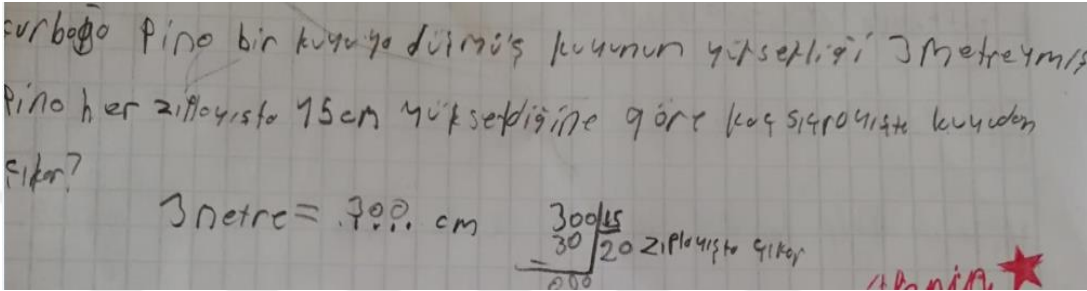 kurbağa Pino bir kuyuya düşmüş kuyunun yüksekliği 3 Metreymiş
Pino her zıplayışta 15cm yükseldiğine göre kaç sıçrayışta kuyudan
çıkar?
3 metre = 300 cm
300 15
30 20 zıplayışta çıkar
000